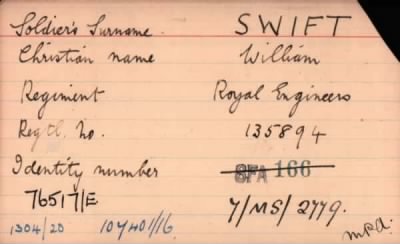 Soldier's Surname. SWIFT
Christian name William
Regiment Royal Engineers
Regtl. No. 135894
Identity number SFA 166
76517/E 7/MS/2779.
1304/20 107401/16. MPA.